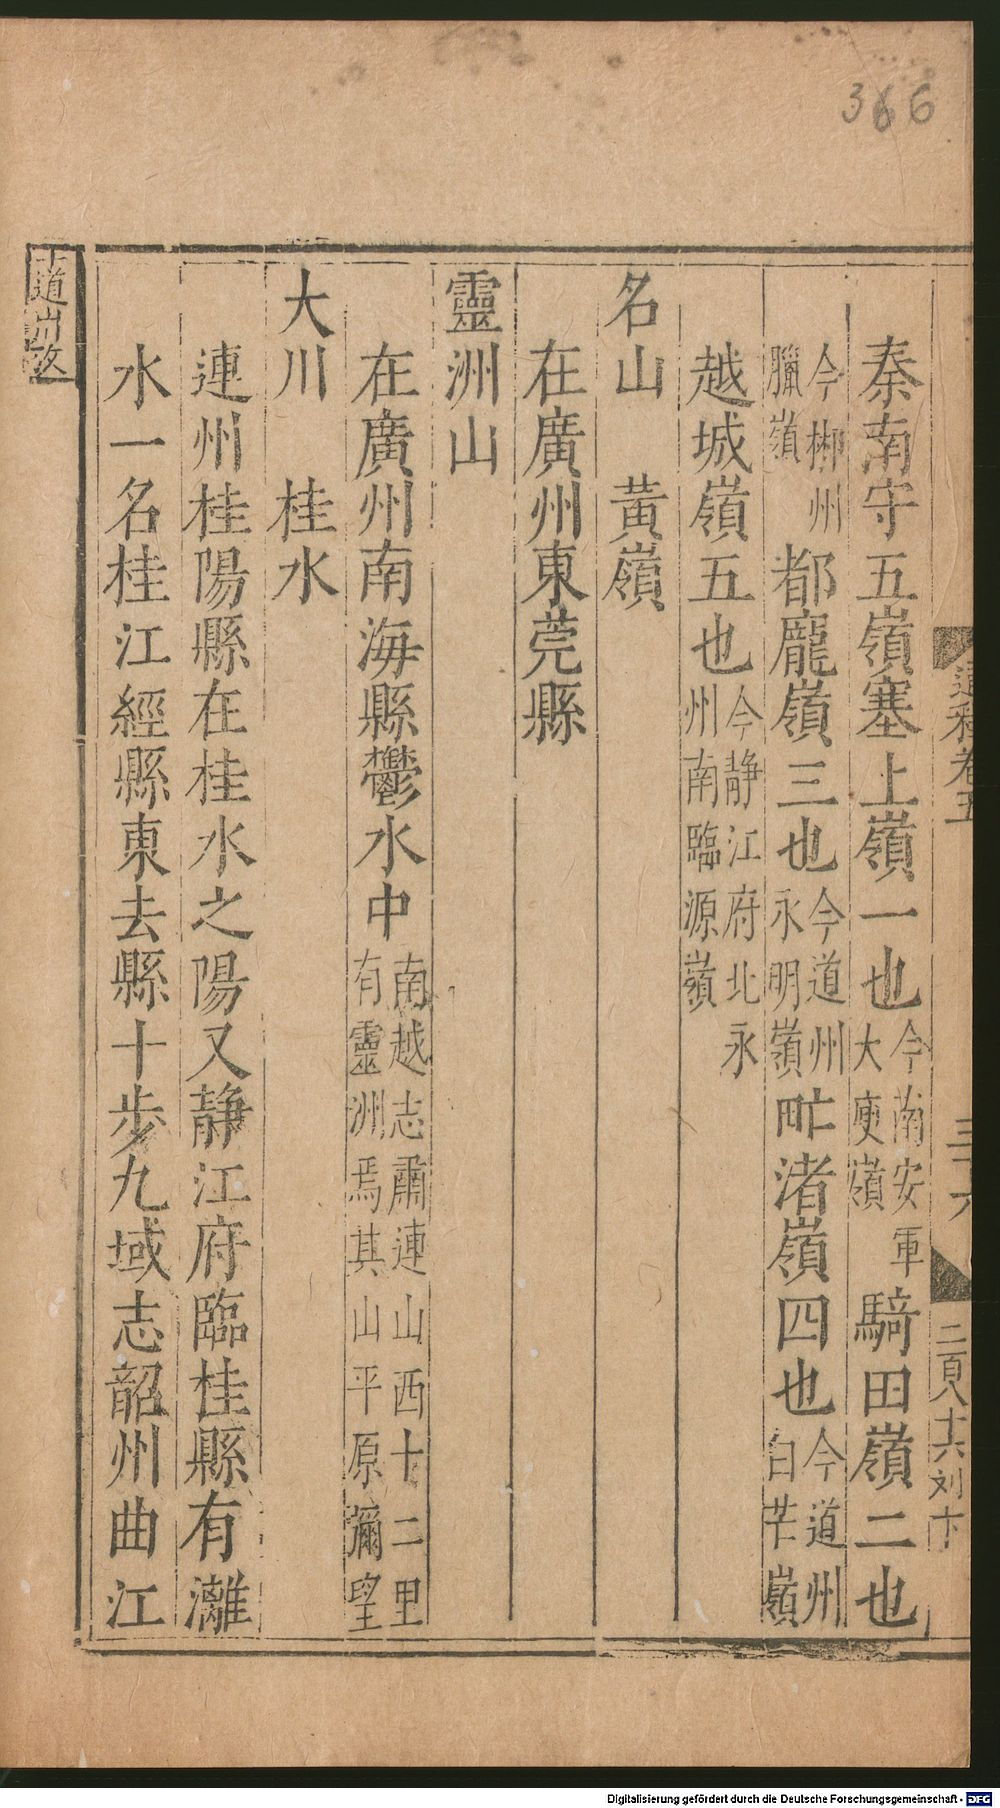 366
秦南守五嶺塞上嶺一也今南安軍大庾嶺騎田嶺二也
今郴州臘嶺都龐嶺三也今道州永明嶺甿渚嶺四也今道州白芒嶺
越城嶺五也今静江府北永州南臨源嶺
名山 黄嶺
在廣州東莞縣
靈洲山
在廣州南海縣鬱水中南越志肅連山西十二里有靈洲焉其山平原彌望
大川 桂水
連州桂陽縣在桂水之陽又静江府臨桂縣有灕
水一名桂江經縣東去縣十步九域志韶州曲江
Digitalisierung gefördert durch die Deutsche Forschungsgemeinschaft - DFG